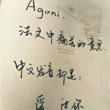 Agoni.
法文中痛苦的意思.
中文发音却是:
爱